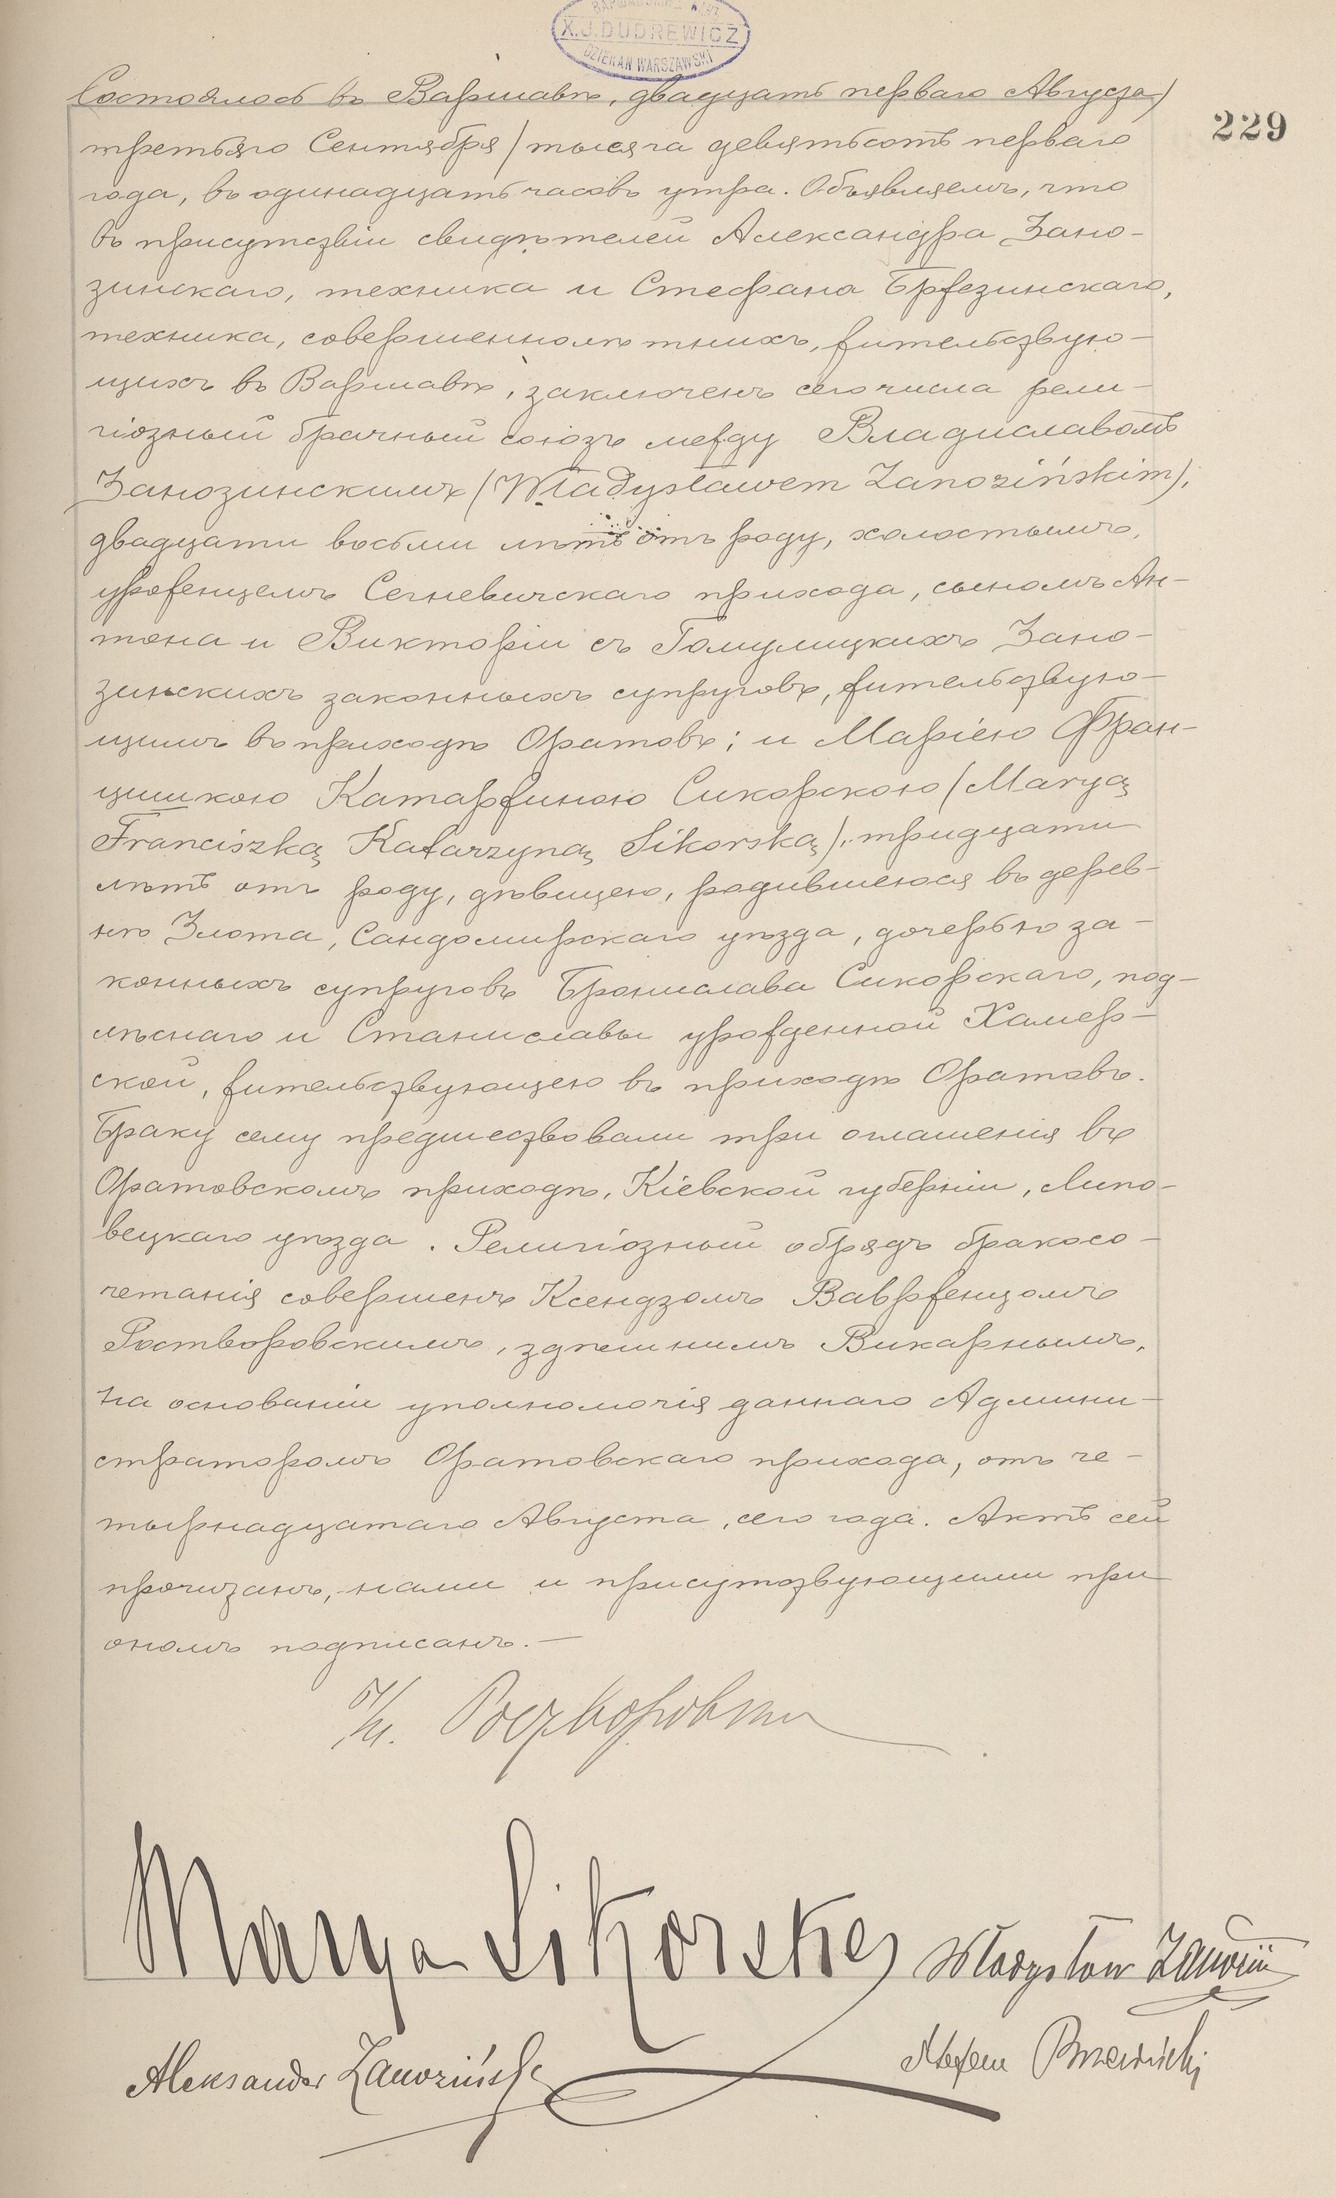 X.J.DUDREWICZ
DZIEKAN WARSZAWSKI
229
Состоялось въ Варшавѣ, двадцать перваго Августа/
третьяго Сентября/тысяча девятьсотъ перваго
года, въ одинадцать часовъ утра. Объявляемъ, что
въ присутствіи свидѣтелей Александра Зано-
зинскаго, техника и Стефана Бржезинскаго,
техника, совершеннолѣтнихъ, жительствую-
щихъ въ Варшавѣ, заключенъ сего числа рели-
гіозный брачный союзъ между Владиславомъ
Занозинскимъ (Władysławem Zanozińskim),
двадцати восьми лѣтъ отъ роду, холостымъ,
уроженцемъ Сегневичскаго прихода, сыномъ Ан-
тона и Викторіи съ Гомулицкихъ Зано-
зинскихъ законныхъ супруговъ, жительствую-
щимъ въ приходѣ Оратовъ; и Маріею Фран-
цишкою Катаржиною Сикорскою (Maryą
Franciszką Katarzyną Sikorską), тридцати
лѣтъ отъ роду, дѣвицею, родившеюся въ дерев-
нѣ Злота, Сандомирскаго уѣзда, дочерью за-
конныхъ супруговъ Бронислава Сикорскаго, под-
лѣснаго и Станиславы урожденной Хамер-
ской, жительствующею въ приходѣ Оратовъ.
Браку сему предшествовали три оглашенія въ
Оратовскомъ приходѣ, Кіевской губерніи, Липо-
вецкаго уѣзда. Религіозный обрядъ бракосо-
четанія совершенъ Ксендзомъ Ваврженцомъ
Ростворовскимъ, здѣшнимъ Викарнымъ,
на основаніи уполномочія даннаго Админи-
страторомъ Оратовскаго прихода, отъ че-
тырнадцатаго Августа, сего года. Актъ сей
прочитанъ, нами и присутствующими при
ономъ подписанъ.—
Ростворовски
Marya Sikorska Władysław
Aleksander Zanoziński Stefan Brzeziński